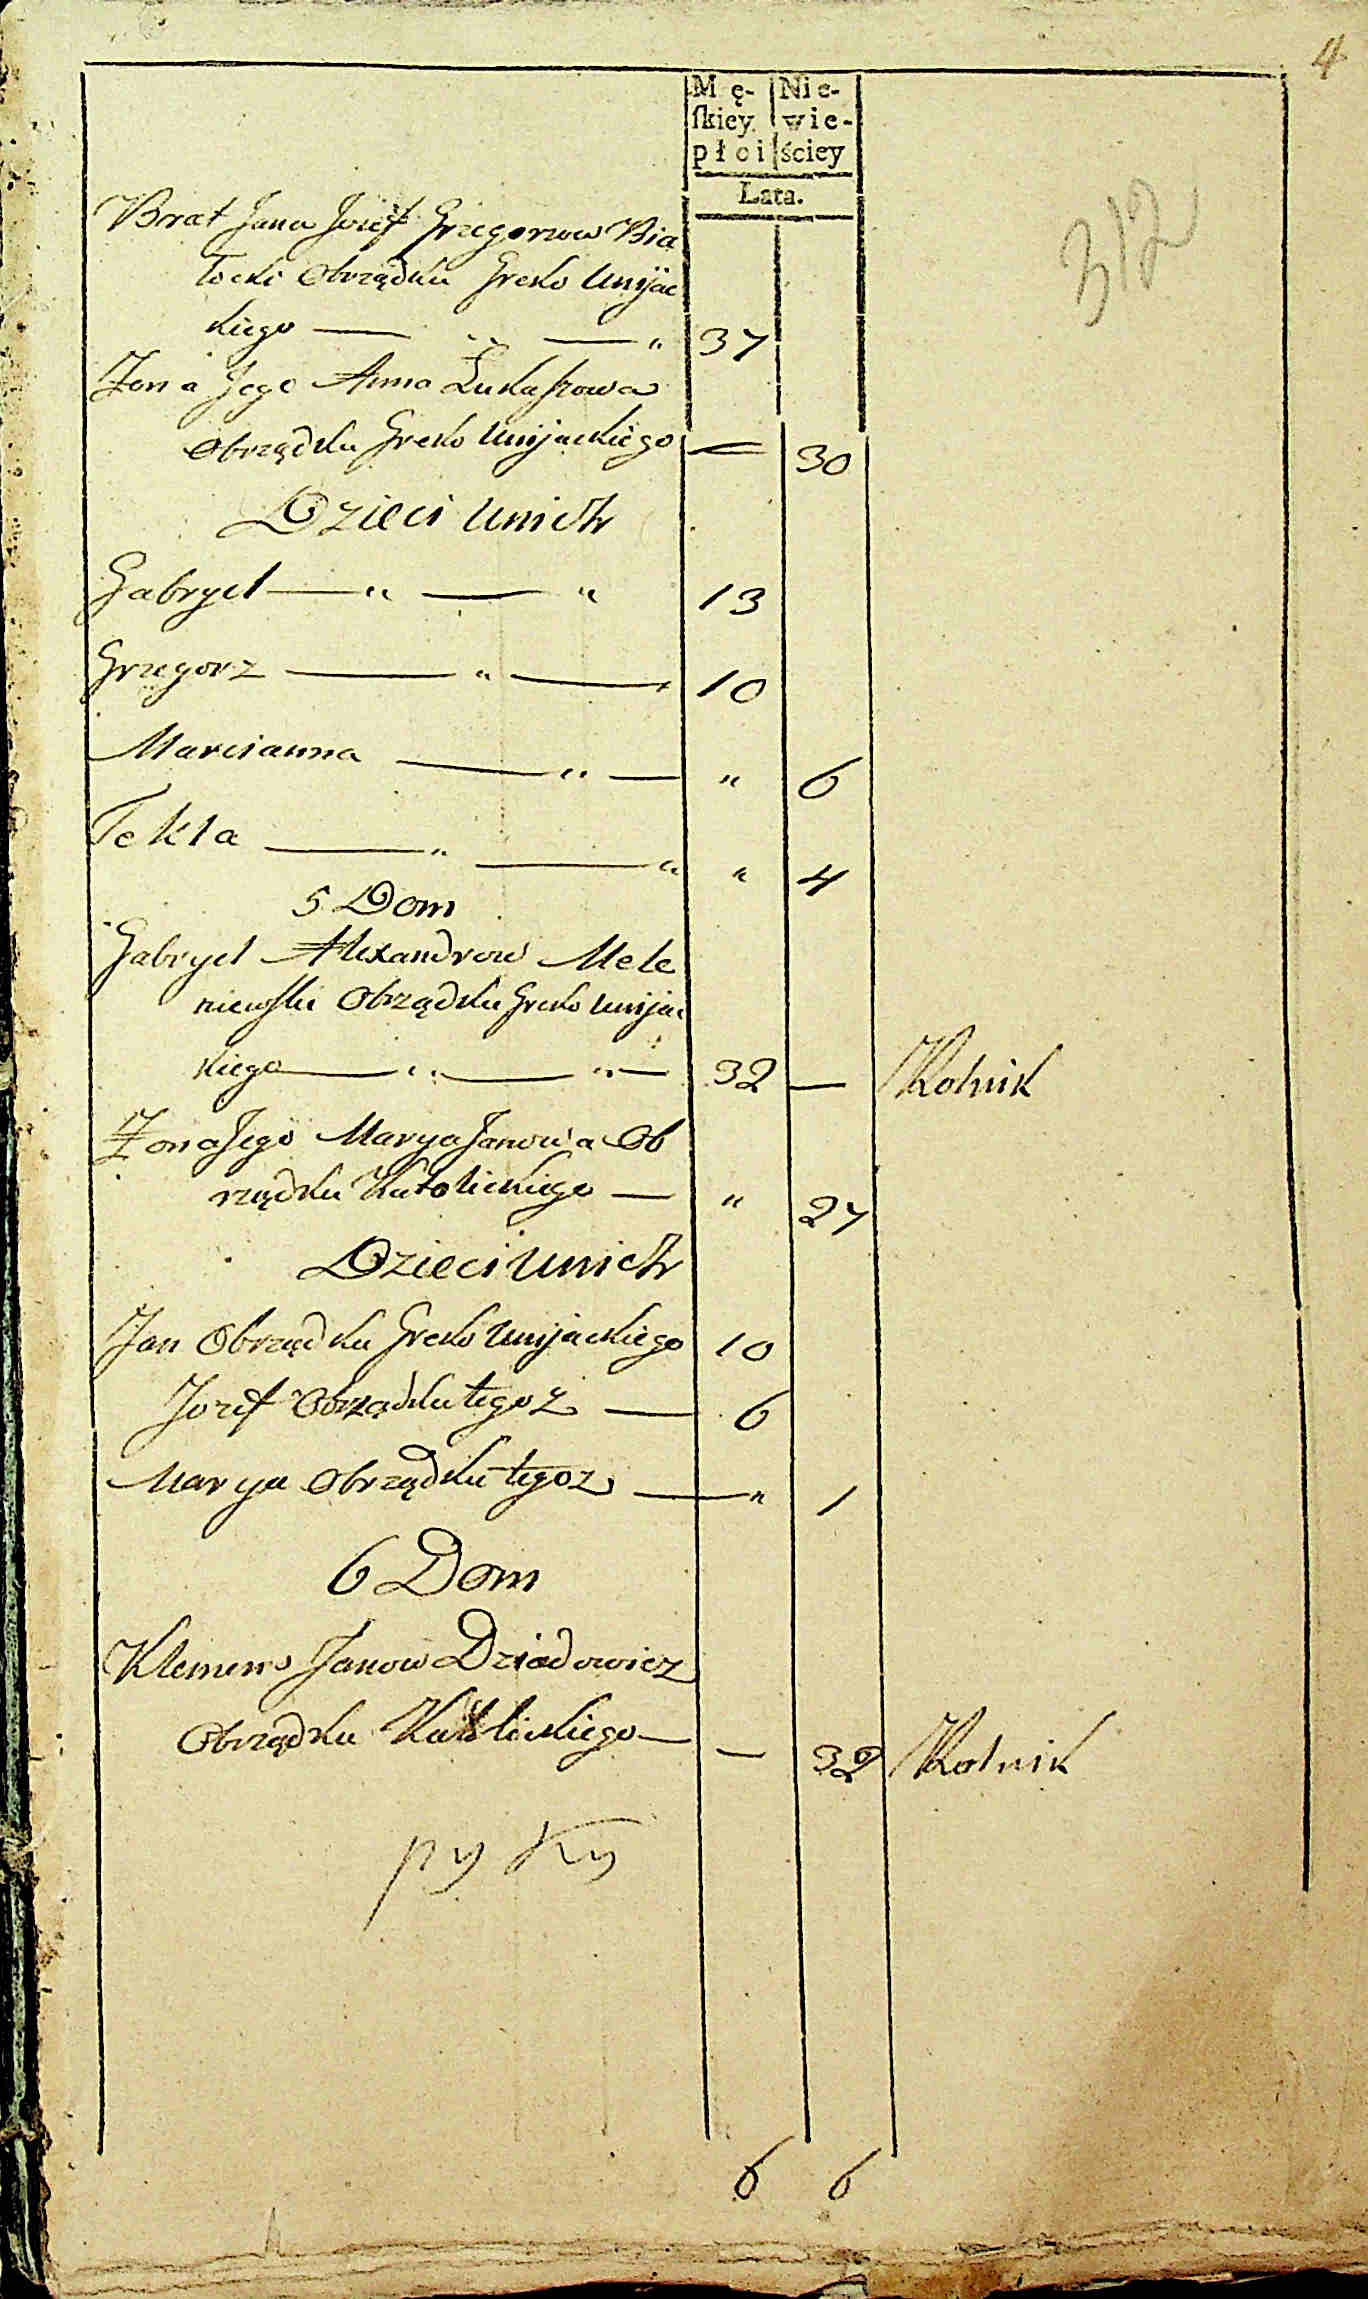 4
Mę- Nie-
ſkiey wie-
płci ściey
Lata.
312
Brat Jana Jozef Grzegorzow Bia
łocki Obrządku Greko Unijac
kiego — " — " 37
Żona Jego Anna Łukaszowa
Obrządku Greko Unijackiego — 30
Dzieci unich
Gabryel — " — " 13
Grzegorz — " — 10
Marcianna — " — " 6
Tekla — " — " " 4
5 Dom
Gabryel Alexandrow Mele
niewski Obrządku Greko Unijac
kiego — " — " — 32 — Rolnik
Żona Jego Marya Janowa Ob
rządku Katolickiego — " 27
Dzieci unich
Jan Obrządku Greko Unijackiego 10
Jozef Obrządku tegoz — 6
Marya Obrządku tegoz — " 1
6 Dom
Klemens Janow Dziadowicz
Obrządku Katolickiego — — 32 Rolnik
6 6